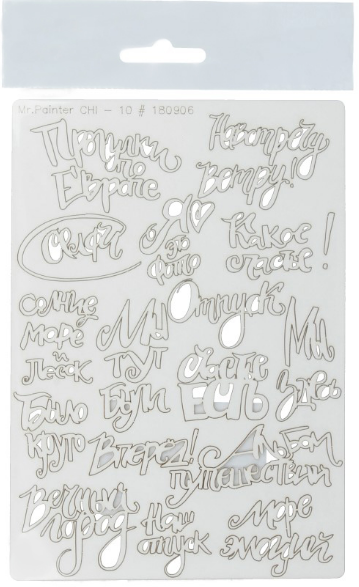 Mr.Painter CHI - 10 # 180906
Прогулки
по
Европе
Навстречу
ветру!
Селфи
Я
это
фото
Какое
счастье!
Отпуск
Солнце
море
и
песок
Мы
тут
были
Счастье
есть
Мы
здесь
Было
круто
Вперёд!
Альбом
путешествий
Вечный
город
Наш
отпуск
Море
эмоций